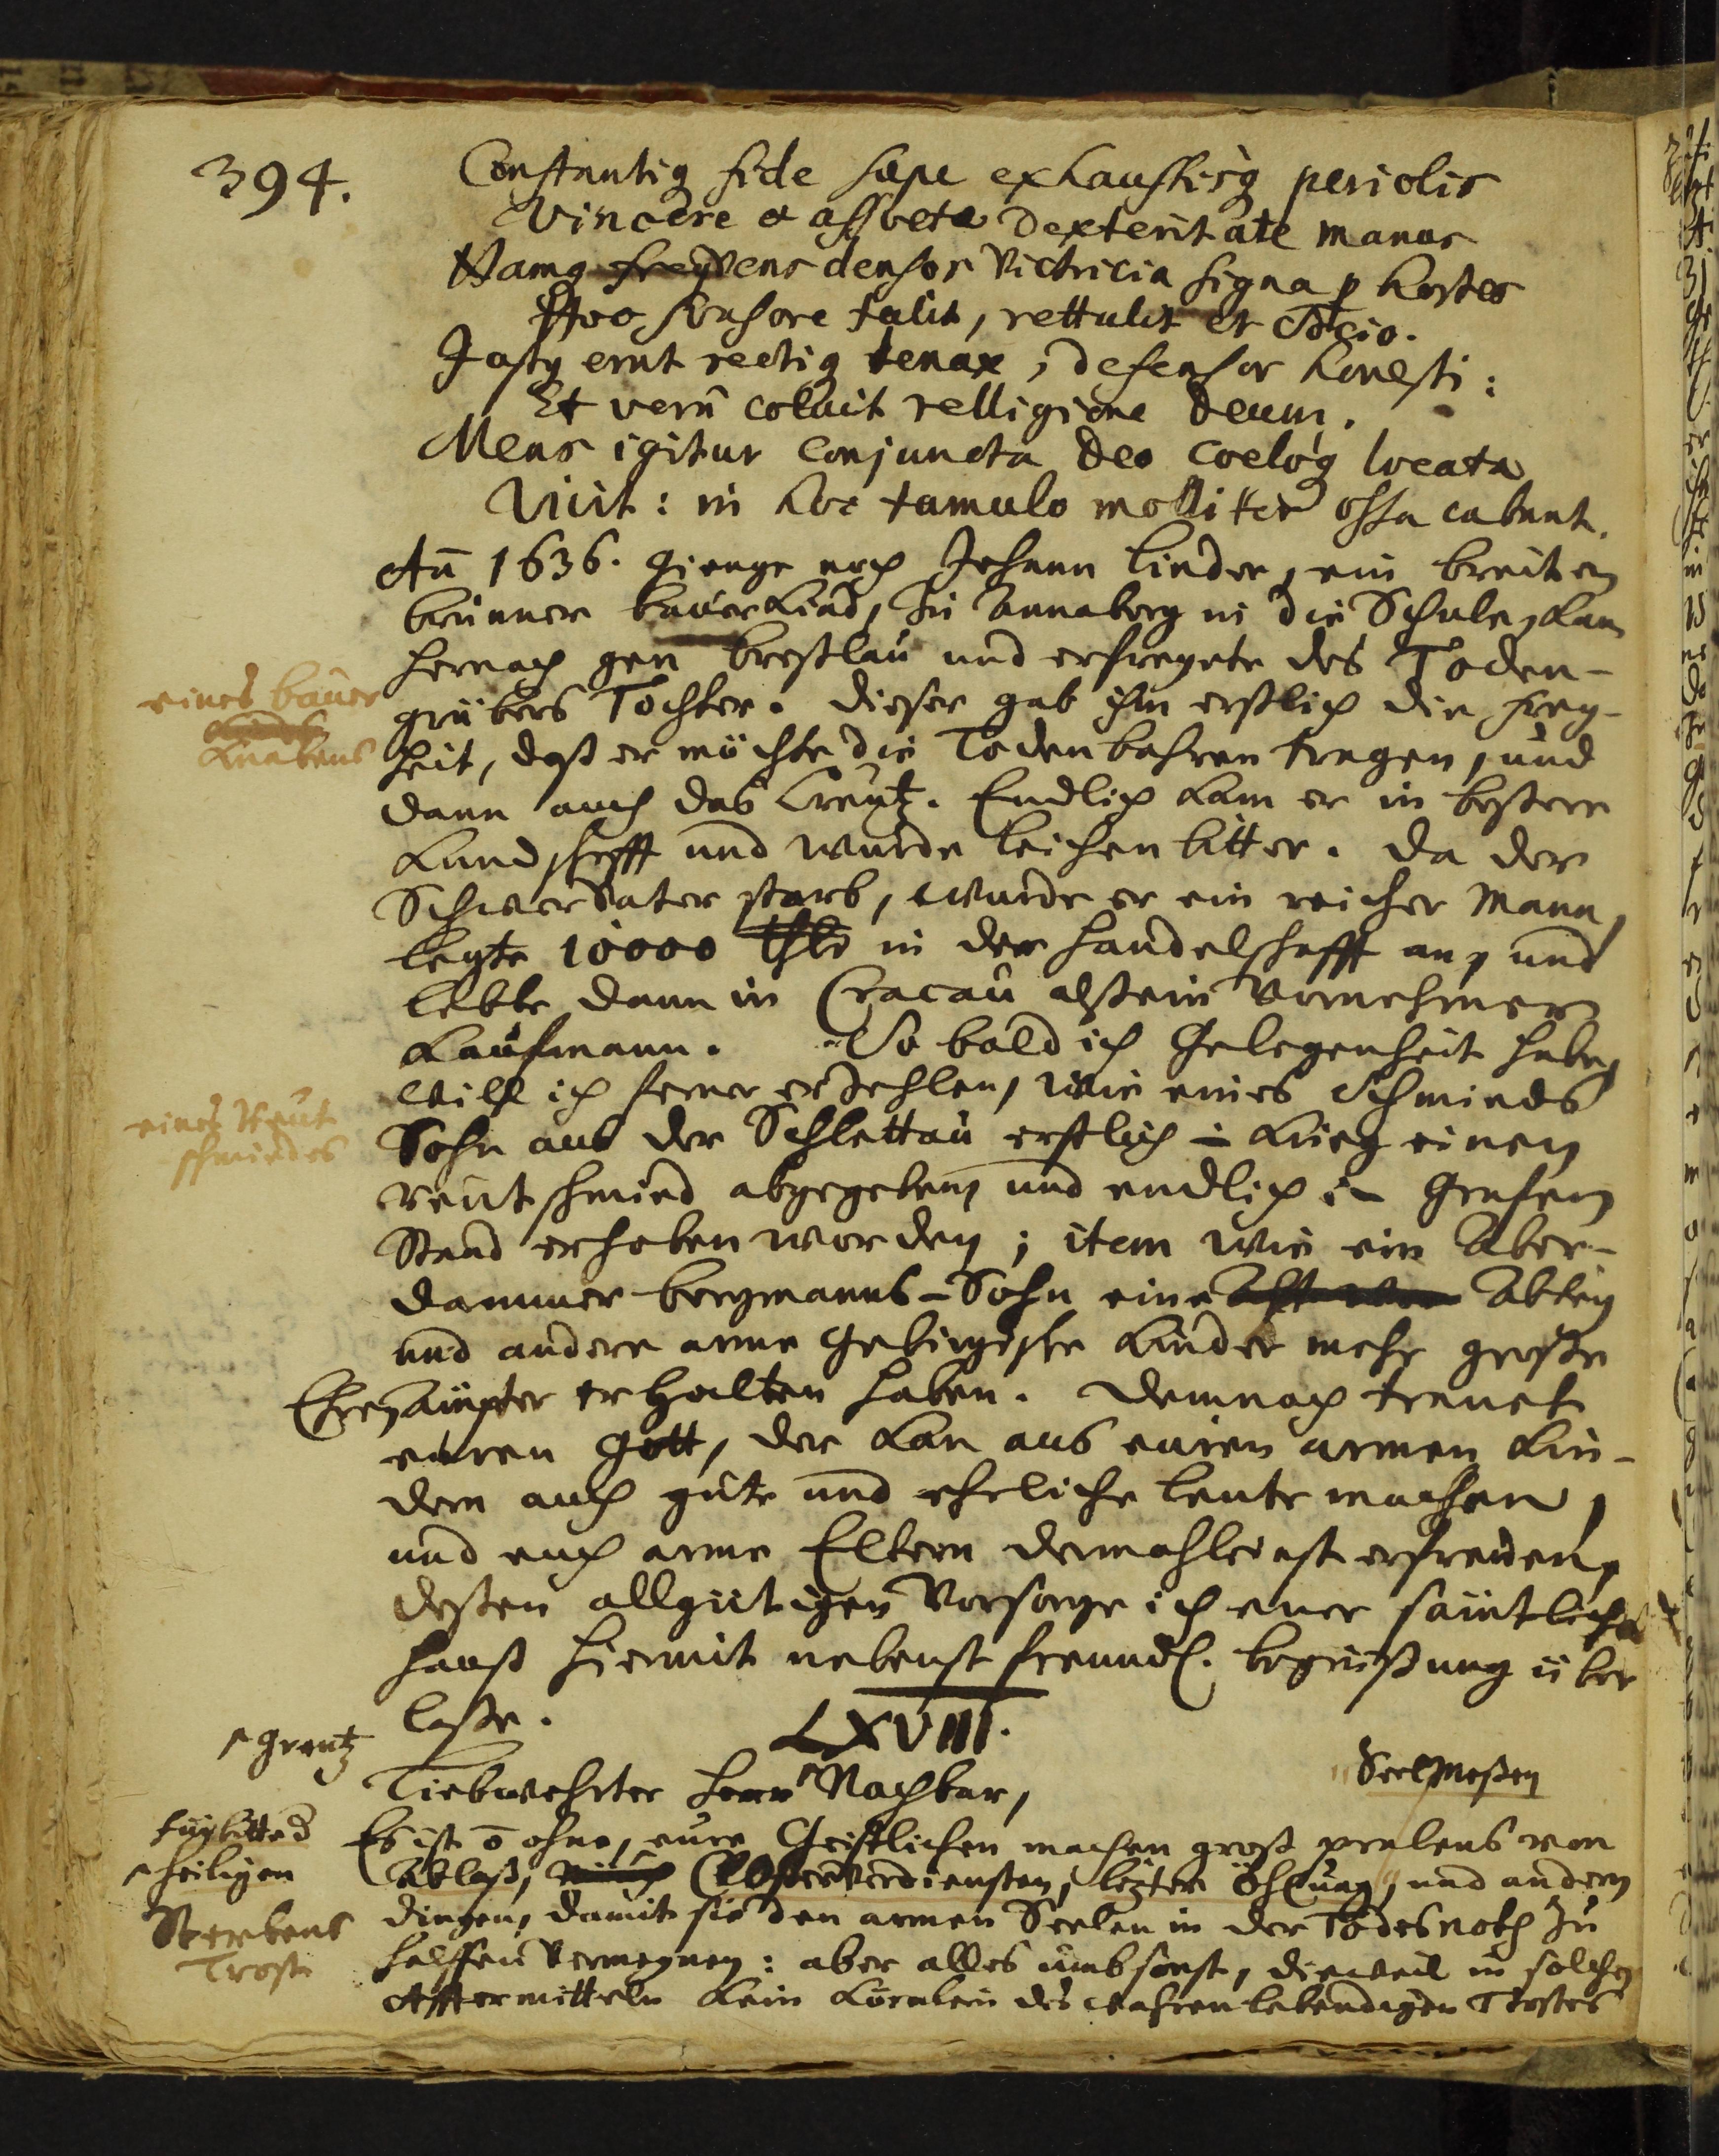 394.
Constantiq fide saepe exhaustisq periclis
Vincere et assueta dexteritate manus
Namq frequens densos victricia signa p hostes
Hoc sensore tulit, rettulit et socio.
Justq erat rectiq tenax, defensor honesti:
Et verū coluit relligione Deum.
Mens igitur conjuncta Deo coeloq locata
Vicit: in hoc tumulo molliter ossa cubant.
Añ 1636. gienge noch Johann Linder, ein breiten
brunner bauerkind, zu Annaberg in die Schule, kam
hernach gen Breßlau und erfreyete des Toden-
gräbers Tochter. Dieser gab ihm erstlich die Frey-
heit, daß er möchte die Todenbahren tragen, und
dann auch das Creutz. Endlich kam er in bessere
Kundschafft und wurde Leichenbitter. Da der
Schwervater starb, wurde er ein reicher Mann,
legte 10000 thlr in der Handelschafft an, und
lebte dann in Cracau alß ein vornehmer
Kaufmann. So bald ich Gelegenheit habe,
will ich ferner erzehlen, wie eines Schmieds
Sohn aus der Schlettau erstlich im Krieg einen
reutschmied abgegeben, und endlich in Grafen
Stand erhoben worden; item wie ein Aber-
dammer Bergmanns-Sohn eine Abtey
und andere arme Gebirgische Kinder mehr große
Ehrenämpter erhalten haben. Demnach trauet
euren Gott, der kan aus euren armen Kin-
dern auch gute und ehrliche Leute machen,
und euch arme Eltern dermahleinst erfreuen,
deßen allgütigen Vorsorge ich euer sämtliches
Hauß hiermit nebenst freundl. begrüßung über
laße.
LXVIII.
Liebwehrter Herr Nachbar,
Es ist ō ohne, eure Geistlichen machen groß pralens von
Ablaß, Closterverdiensten, lezter Öhlung, und andern
dingen, damit sie den armen Seelen in der Todesnoth zu
helffen vermeynen: aber alles umbsonst, dieweil in solchen
Afftermitteln kein Körnlein des wahren lebendigen Trostes
eines bauer
Knabens
eines Reut
schmiedes
Greutz
Seelmeßen
fürbitte d
heiligen
Sterbens
Trost